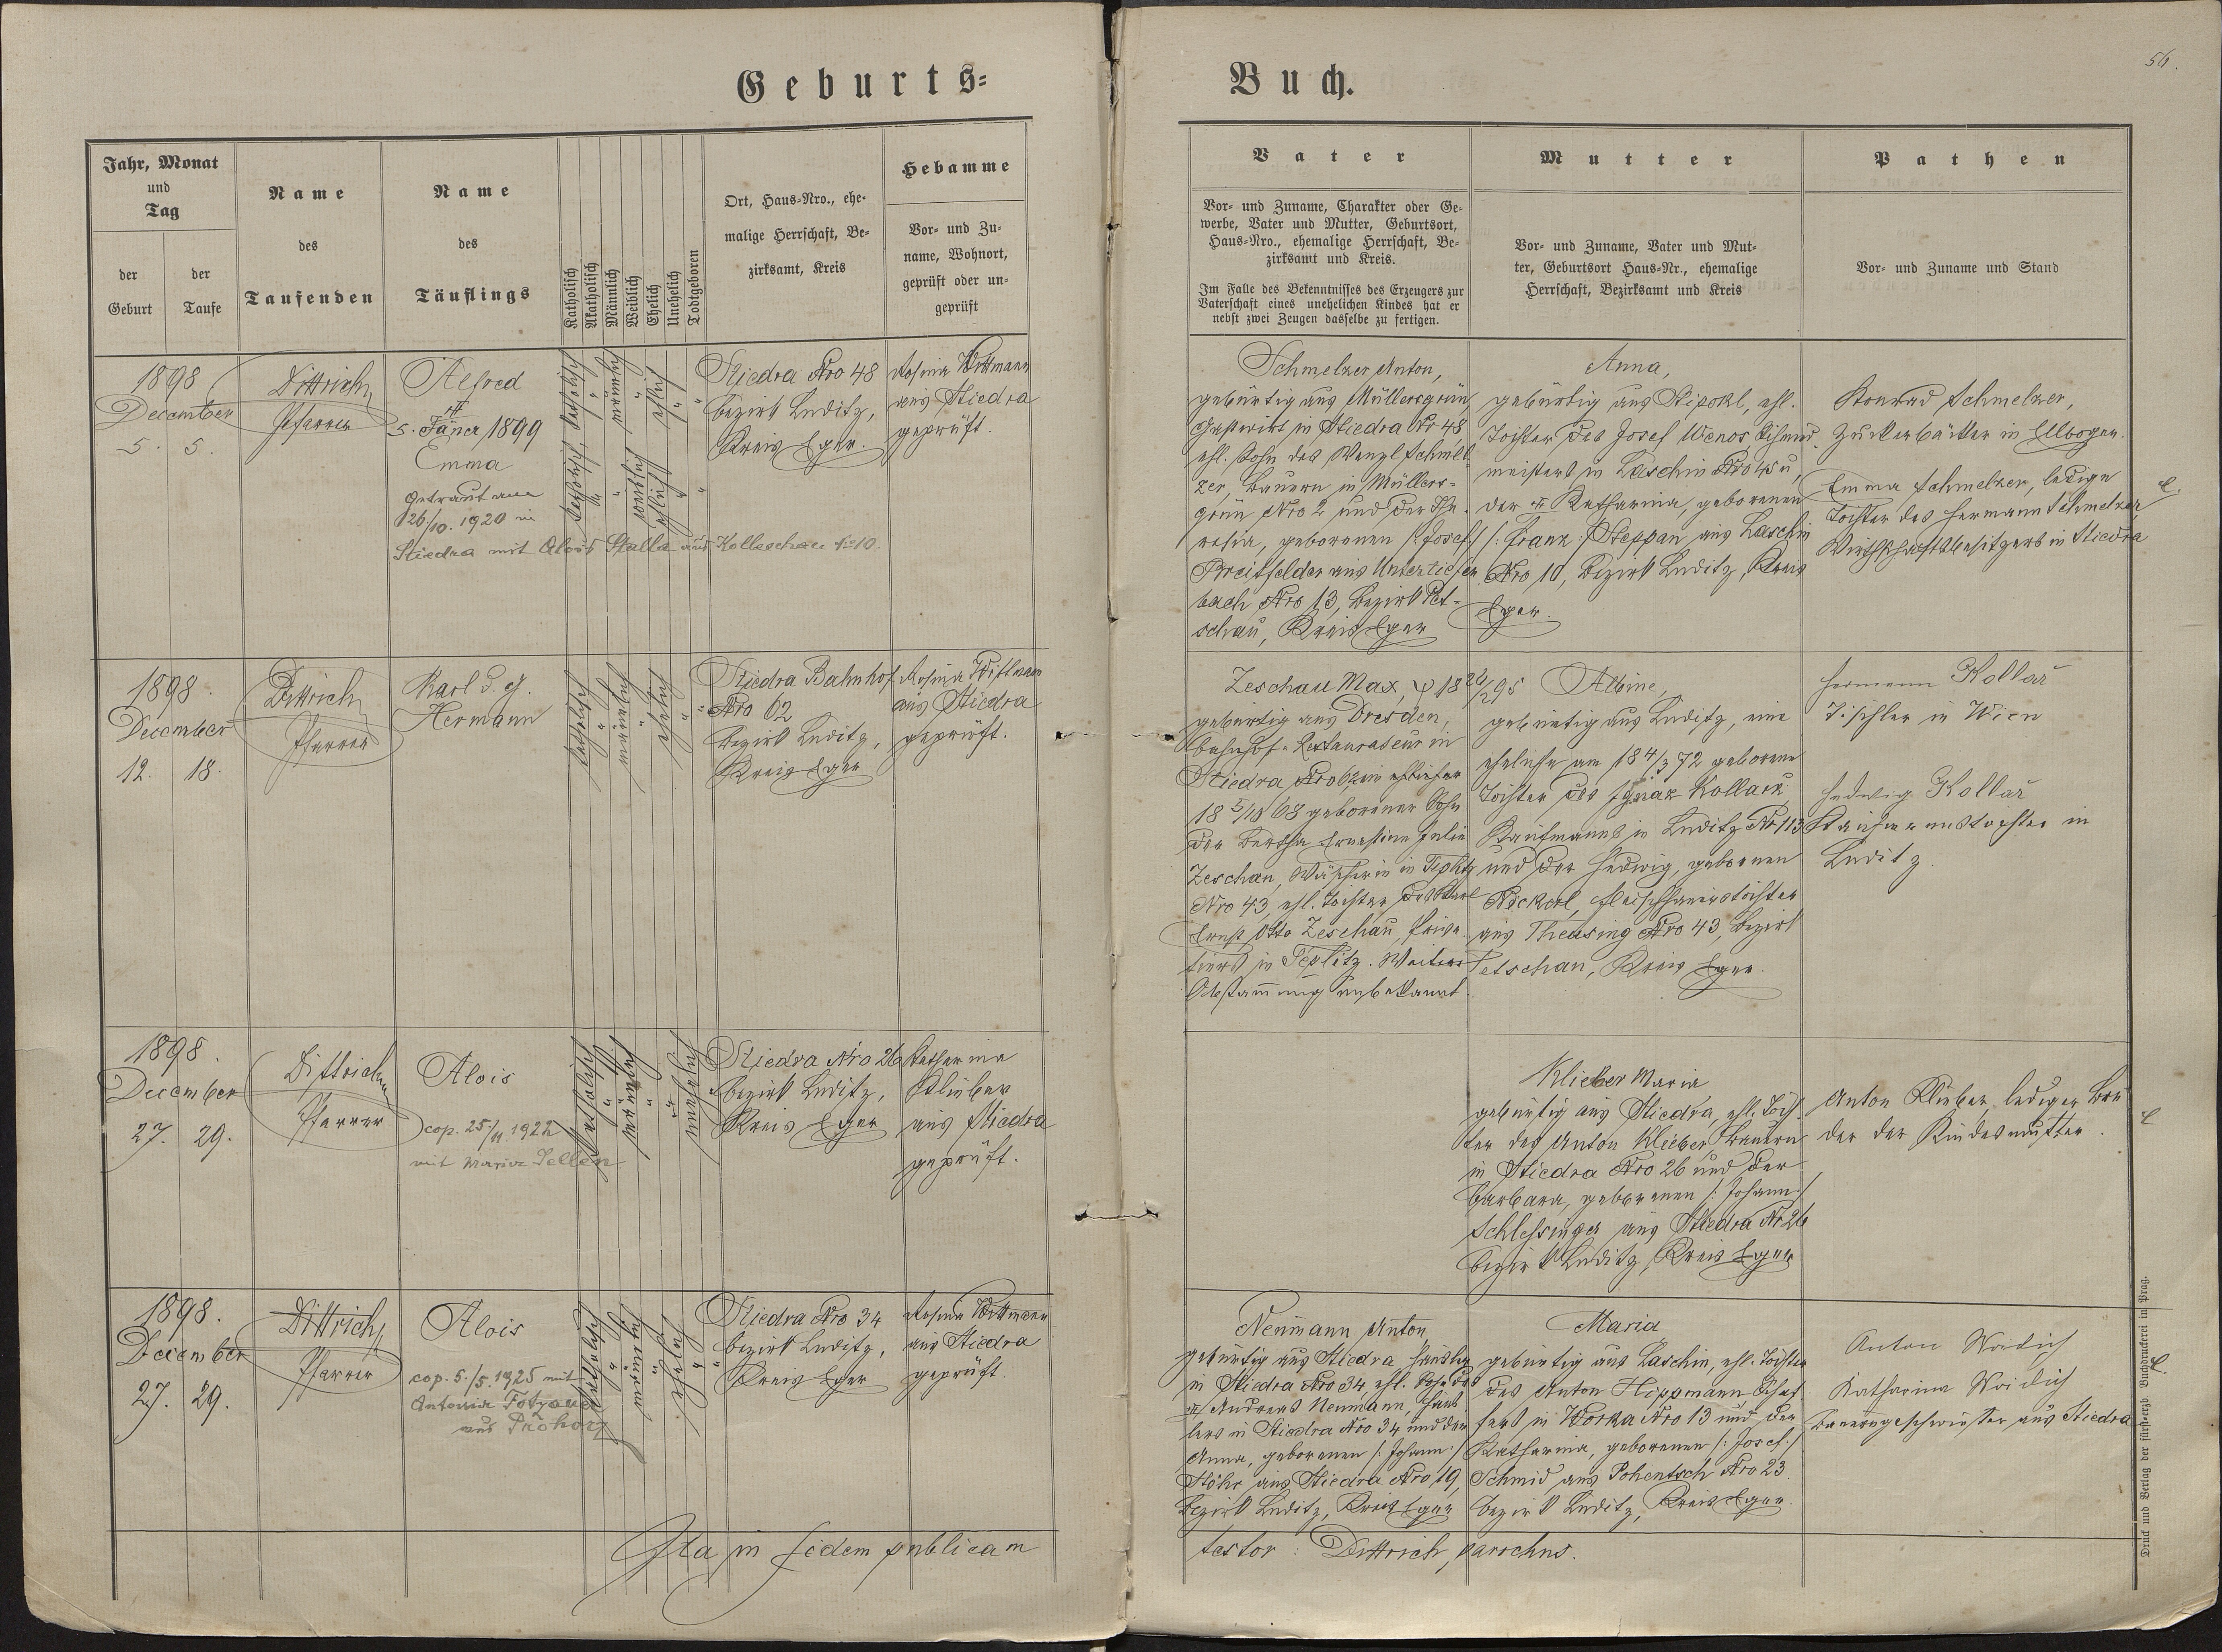 Geburts=
Buch.
56.
Jahr, Monat
und
Tag
der
Geburt
der
Taufe
Name
des
Taufenden
Name
des
Täuflings
Katholisch
Akatholisch
Männlich
Weiblich
Ehelich
Unehelich
Todtgeboren
Ort, Haus-Nro., ehe-
malige Herrschaft, Be-
zirksamt, Kreis
Hebamme
Vor- und Zu-
name, Wohnort,
geprüft oder un-
geprüft
Vater
Vor- und Zuname, Charakter oder Ge-
werbe, Vater und Mutter, Geburtsort,
Haus-Nro., ehemalige Herrschaft, Be-
zirksamt und Kreis.
Im Falle des Bekenntnisses des Erzeugers zur
Vaterschaft eines unehelichen Kindes hat er
nebst zwei Zeugen dasselbe zu fertigen.
Mutter
Vor- und Zuname, Vater und Mut-
ter, Geburtsort Haus-Nr., ehemalige
Herrschaft, Bezirksamt und Kreis
Pathen
Vor- und Zuname und Stand
1898
December
5. 5.
Dittrich
Pfarrer
Alfred
5. Jäner 1899
Emma
Getraut am
26./10. 1920 in
Stiedra mit Alois Stalla aus Kolleschau No 10.
katholisch
männlich
ehlich
katholisch
weiblich
ehlich
Stiedra Nro 48
Bezirk Luditz,
Kreis Eger.
Rosina Wittmann
aus Stiedra
geprüft.
Schmelzer Anton,
gebürtig aus Müllersgrün
Gastwirt in Stiedra Nr 48,
ehl. Sohn des Wenzl Schmel-
zer, Bauern in Müllers-
grün Nro 2 und der The-
resia, geborenen /:Josef:/
Breitfelder aus Untertiefen
bach Nro 13, Bezirk Pet-
schau, Kreis Eger
Anna,
gebürtig aus Stipokl, ehl.
Tochter des Josef Wenos,
meisters in Laschin Nro 45 u.
der Katharina, geborenen
/:Franz:/ Steppan aus Laschin
Nro 10, Bezirk Luditz, Kreis
Eger.
Konrad Schmelzer,
Zuckerbäcker in Elbogen.
Emma Schmelzer, ledige
Tochter des Hermann Schmelzer
Wirthschaftsbesitzers in Stiedra
1898.
December
12. 18.
Dittrich
Pfarrer
Karl
Hermann
katholisch
männlich
ehelich
Stiedra Bahnhof
Nro 62
Bezirk Luditz,
Kreis Eger
Rosina Wittmann
aus Stiedra
geprüft.
Zeschau Max,
gebürtig aus Dresden,
Bahnhof-Restaurateur in
Stiedra Nro 62
18 5/10 68 geborener Sohn
der Bertha Ernestine Julie
Zeschau, Wäscherin in Teplitz
Nro 43, ehl. Tochter des Karl
Ernst Otto Zeschau, Priva-
tiers in Teplitz. Weitere
Abstammung unbekannt.
Albine,
gebürtig aus Luditz, eine
eheliche am 18 4/3 72 geborene
Tochter des Ignaz Kollarz
Kaufmanns in Luditz Nr 113
und der Hedwig, geborenen
Nickerl, Fleischhauerstochter
aus Theusing Nro 43, Bezirk
Petschau, Kreis Eger.
Hermann Kollař
Tischler in Wien
Hedwig Kollař
Kaufmannstochter in
Luditz.
1898.
December
27. 29.
Dittrich
Pfarrer
Alois
cop. 25/11. 1922
mit Maria Seller
katholisch
männlich
unehelich
Stiedra Nro 26
Bezirk Luditz,
Kreis Eger
Katharina
Klieber
aus Stiedra
geprüft.
Klieber Maria
gebürtig aus Stiedra, ehl. Toch-
ter des Anton Klieber Bauern
in Stiedra Nro 26 und der
Barbara, geborenen /:Johann:/
Schlessinger aus Stiedra Nr 26
Bezirk Luditz, Kreis Eger
Anton Klieber, lediger Bru
der der Kindesmutter.
1898.
December
27. 29.
Dittrich
Pfarrer
Alois
cop. 5./5. 1925 mit
Antonia
aus Prohorz
katholisch
männlich
ehelich
Stiedra Nro 34
Bezirk Luditz,
Kreis Eger
Rosina Wittmann
aus Stiedra
geprüft.
Neumann Anton,
gebürtig aus Stiedra, Häusler
in Stiedra Nro 34, ehl. Sohn des
Andreas Neumann, Häus-
lers in Stiedra Nro 34 und der
Anna, geborenen /:Johann:/
Höhr aus Stiedra Nro 19,
Bezirk Luditz, Kreis Eger
Maria
gebürtig aus Laschin, ehl. Tochter
des Anton Hippmann Schaf
fers in Worka Nro 13 und der
Katharina, geborenen /:Josef:/
Schmid aus Pohentsch Nro 23
Bezirk Luditz, Kreis Eger.
Anton Woidich
Katharina Woidich
Bauersgeschwister aus Stiedra
Ita in fidem publicam
testor: Dittrich, parochus.
Druck und Verlag der fürst-erzb Buchdruckerei in Prag.